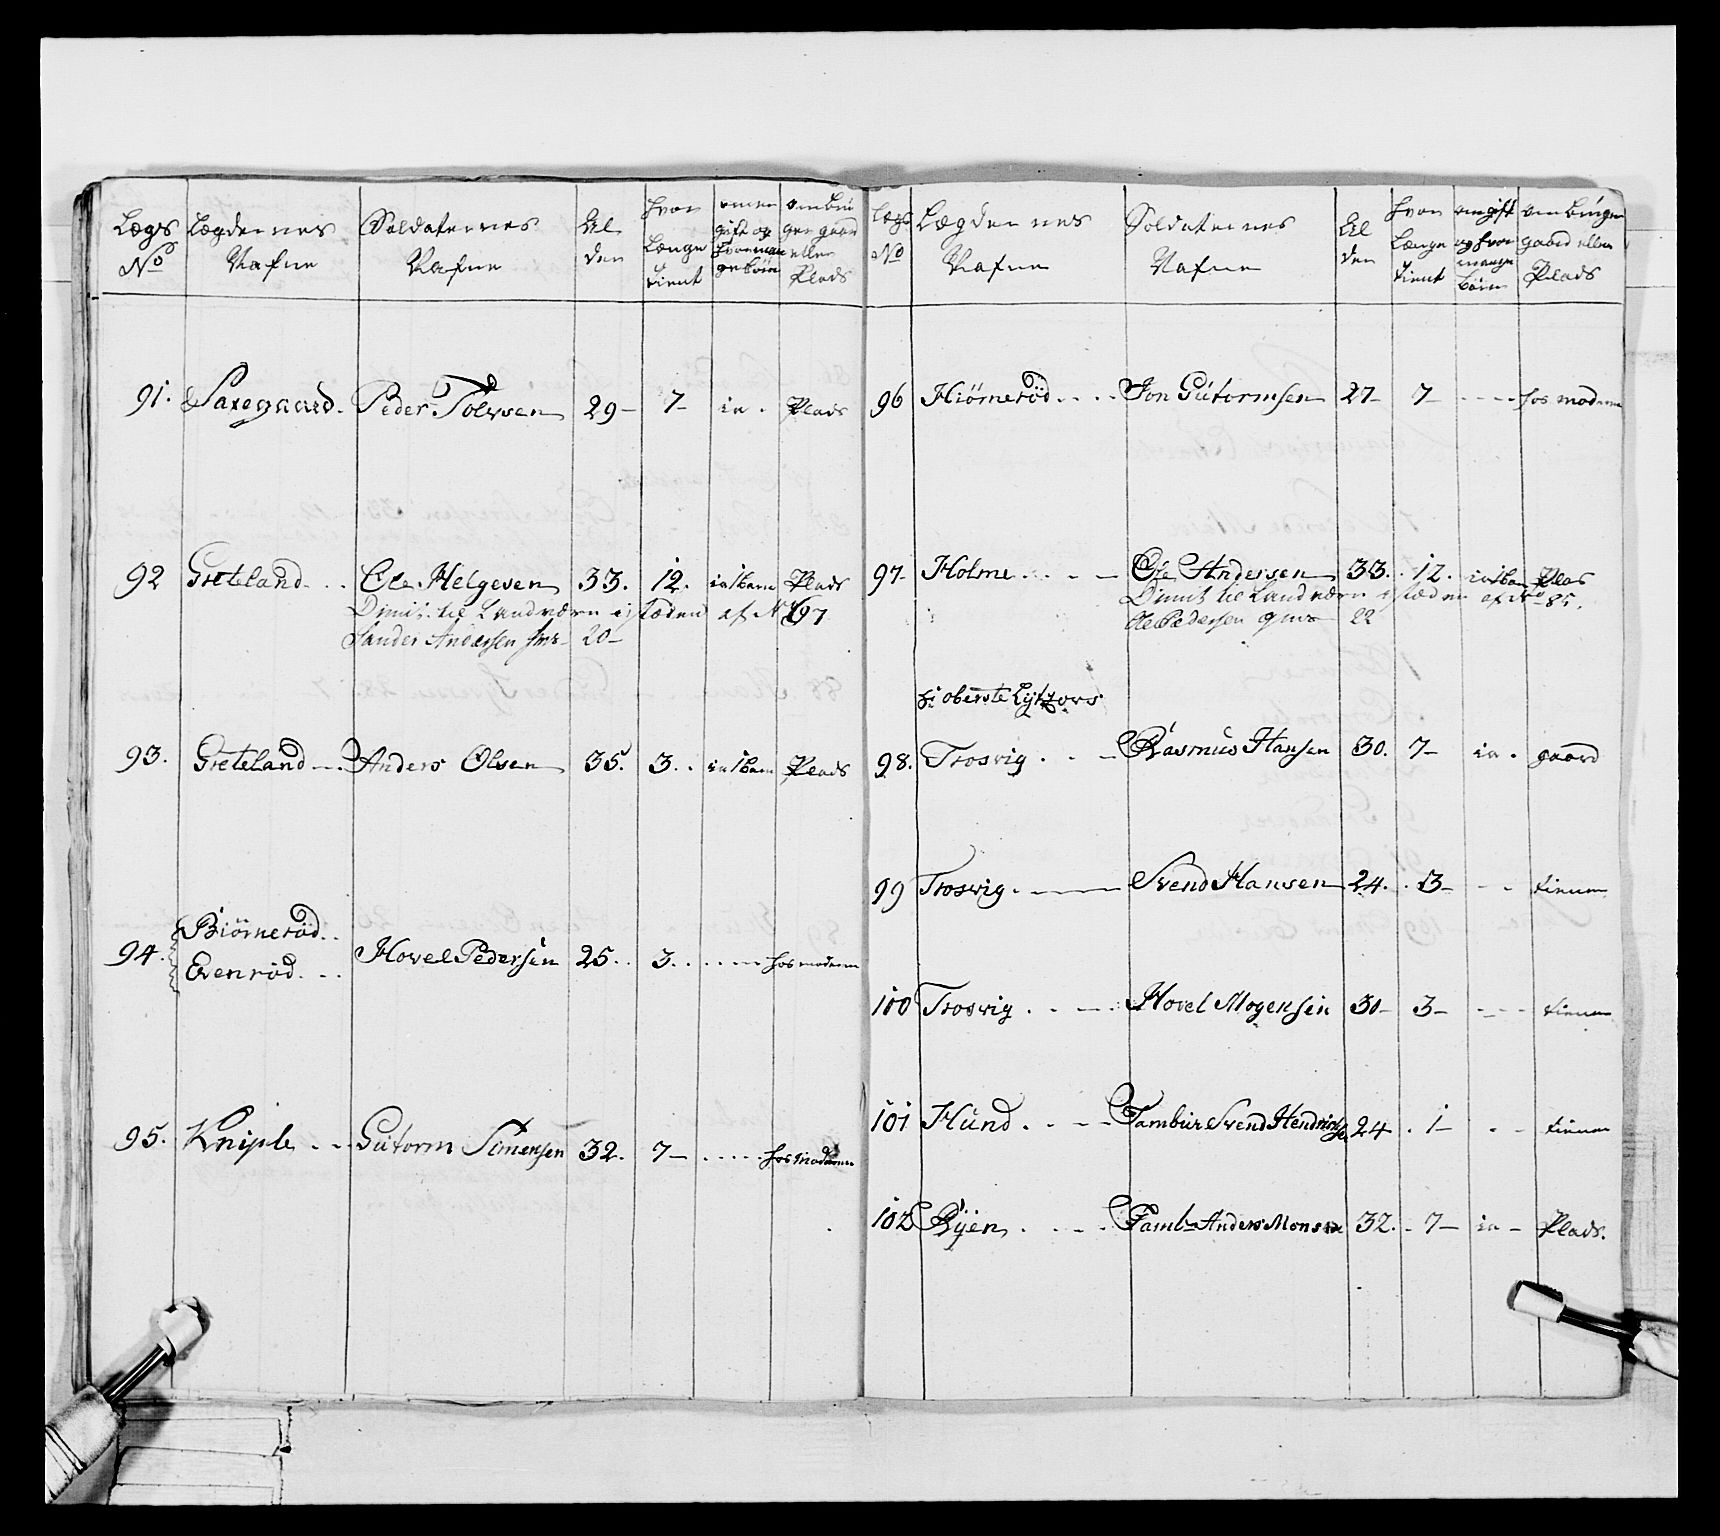 Lægs No | Lægdernes Nafne | Soldaternes Nafne | Alden | hvor Længe tient | om er gift og hvor mange börn | om bruger gaard eller Plads
91. Saxegaard. Peder Tolvsen 29- 7- ia. Plads
92 Greteland... Ole Helgesen 33. 12. ia 1 barn Plads
Dimit: til Landværn i steden af No 97
Sander Andersen 20-
93. Greteland... Anders Olsen 35. 3.. ia 1 barn Plads
94. Biörneröd..
Evenröd... Hovel Pedersen 25.. 3. ..... hos moderen
95. Kniple... Gutorm Simensen 32. 7- ..... hos moderen
Lægs No | Lægdernes Nafne | Soldaternes Nafne | Alden | hvor Længe tient | om gift og hvor mange börn | om bruger gaard eller Plads
96 Hiörneröd.... Jon Gutormsen 27- 7- .... hos moderen
97- Holme.... Ole Andersen 33. 12. ia 1 barn Plas
Dimit til Landværn i stæden af No 85.
Ole Pedersen 22
oberste Lützows
98. Trosvig... Rasmus Hansen 30. 7- ia. gaard
99 Trosvig. Svend Hansen 24. 3- - - tiener
100 Trosvig.... Hovel Mogensen 30- 3- ---- tiener
101 Hund.... Tambur Svend Hendrichsen 24. 1- - - tiener
102 Ryen.... Tamb- Anders Monsen 32. 7- ia- Plads.